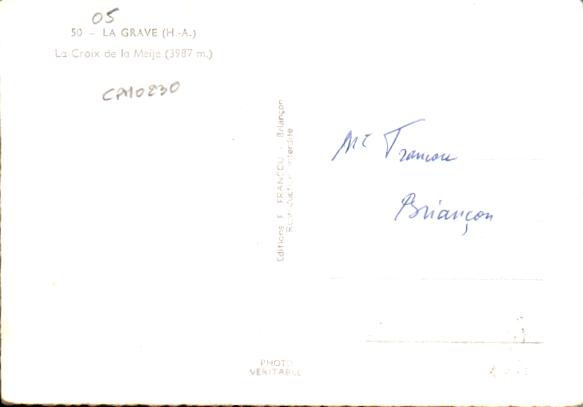 05
50 - LA GRAVE (H.-A.)
La Croix de la Meije (3987 m.)
CPA10230
Editions F. FRANCOU - Briançon
Reproduction interdite
Mr Francou
Briançon
PHOTO
VERITABLE